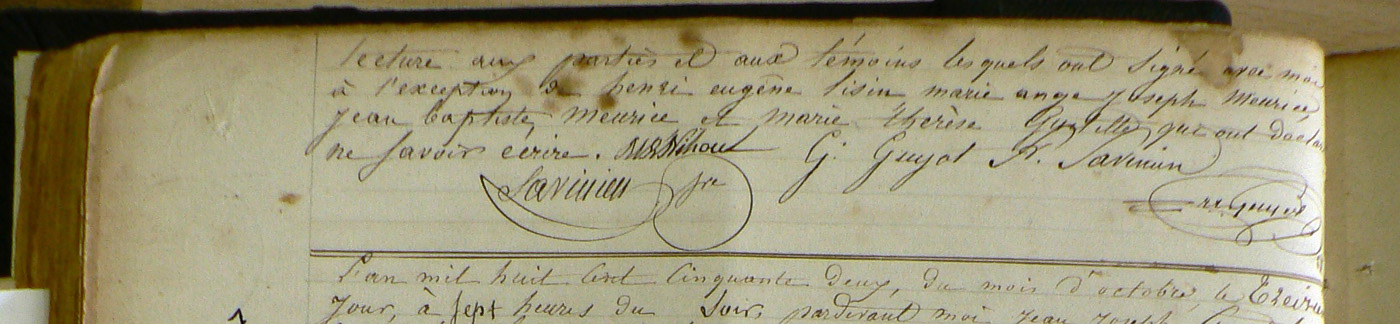 lecture aux parties et aux témoins lesquels ont signé avec moi
à l'exception de henri eugène marie ange joseph meurice
jean baptiste meurice et marie thérèse qui ont déclaré
ne savoir écrire. G. Guyot Savinien
Savinien fre Guyot
L'an mil huit cent cinquante deux, du mois d'octobre, le treize
jour, à sept heures du soir, pardevant moi jean joseph